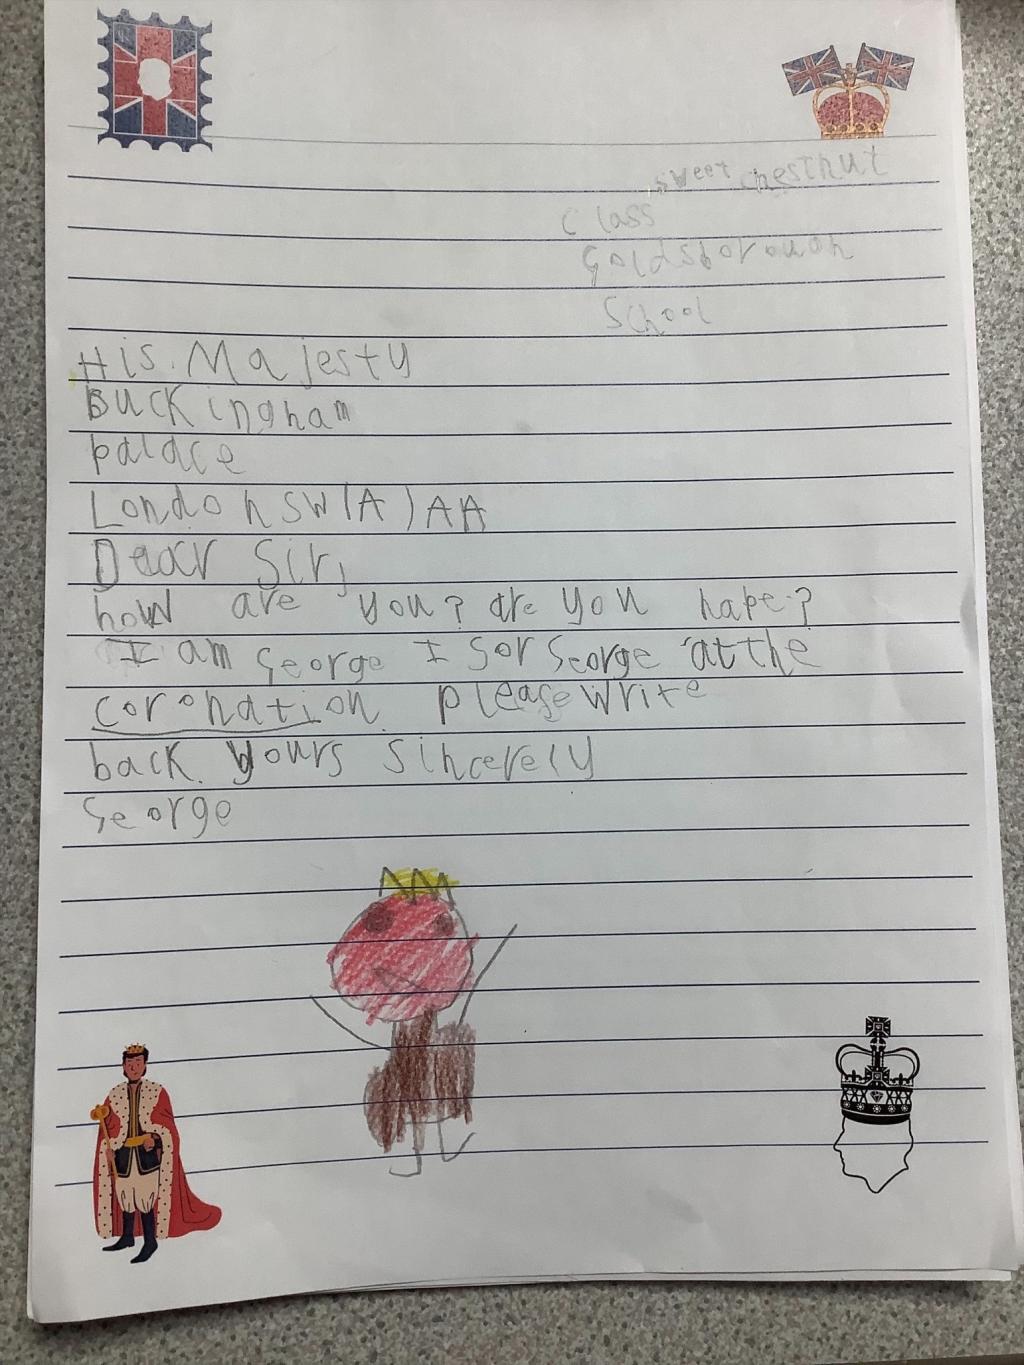 sweet chestnut
Class
Goldsborough
School
His Majesty
Buckingham
palace
London SW1A 1AA
Dear Sir,
how are you? are you hape?
I am George I sor George at the
coronation. please write
back. yours sincerely
George